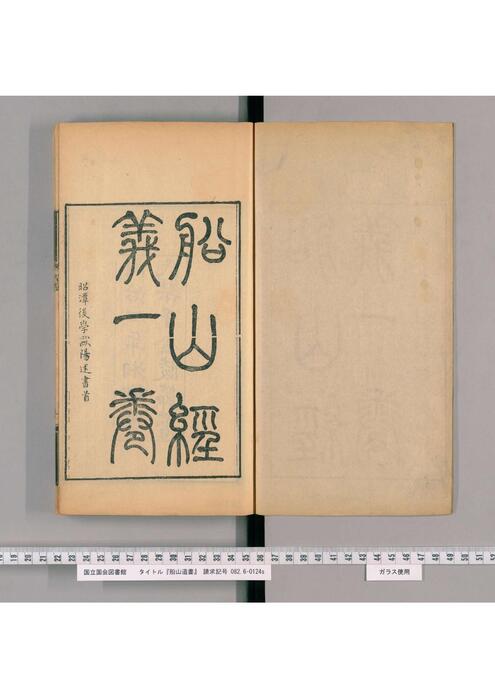 船山經
義一卷
昭潭後學歐陽述書首
国立国会図書館 タイトル『船山遺書』 請求記号 082.6-0124s
ガラス使用